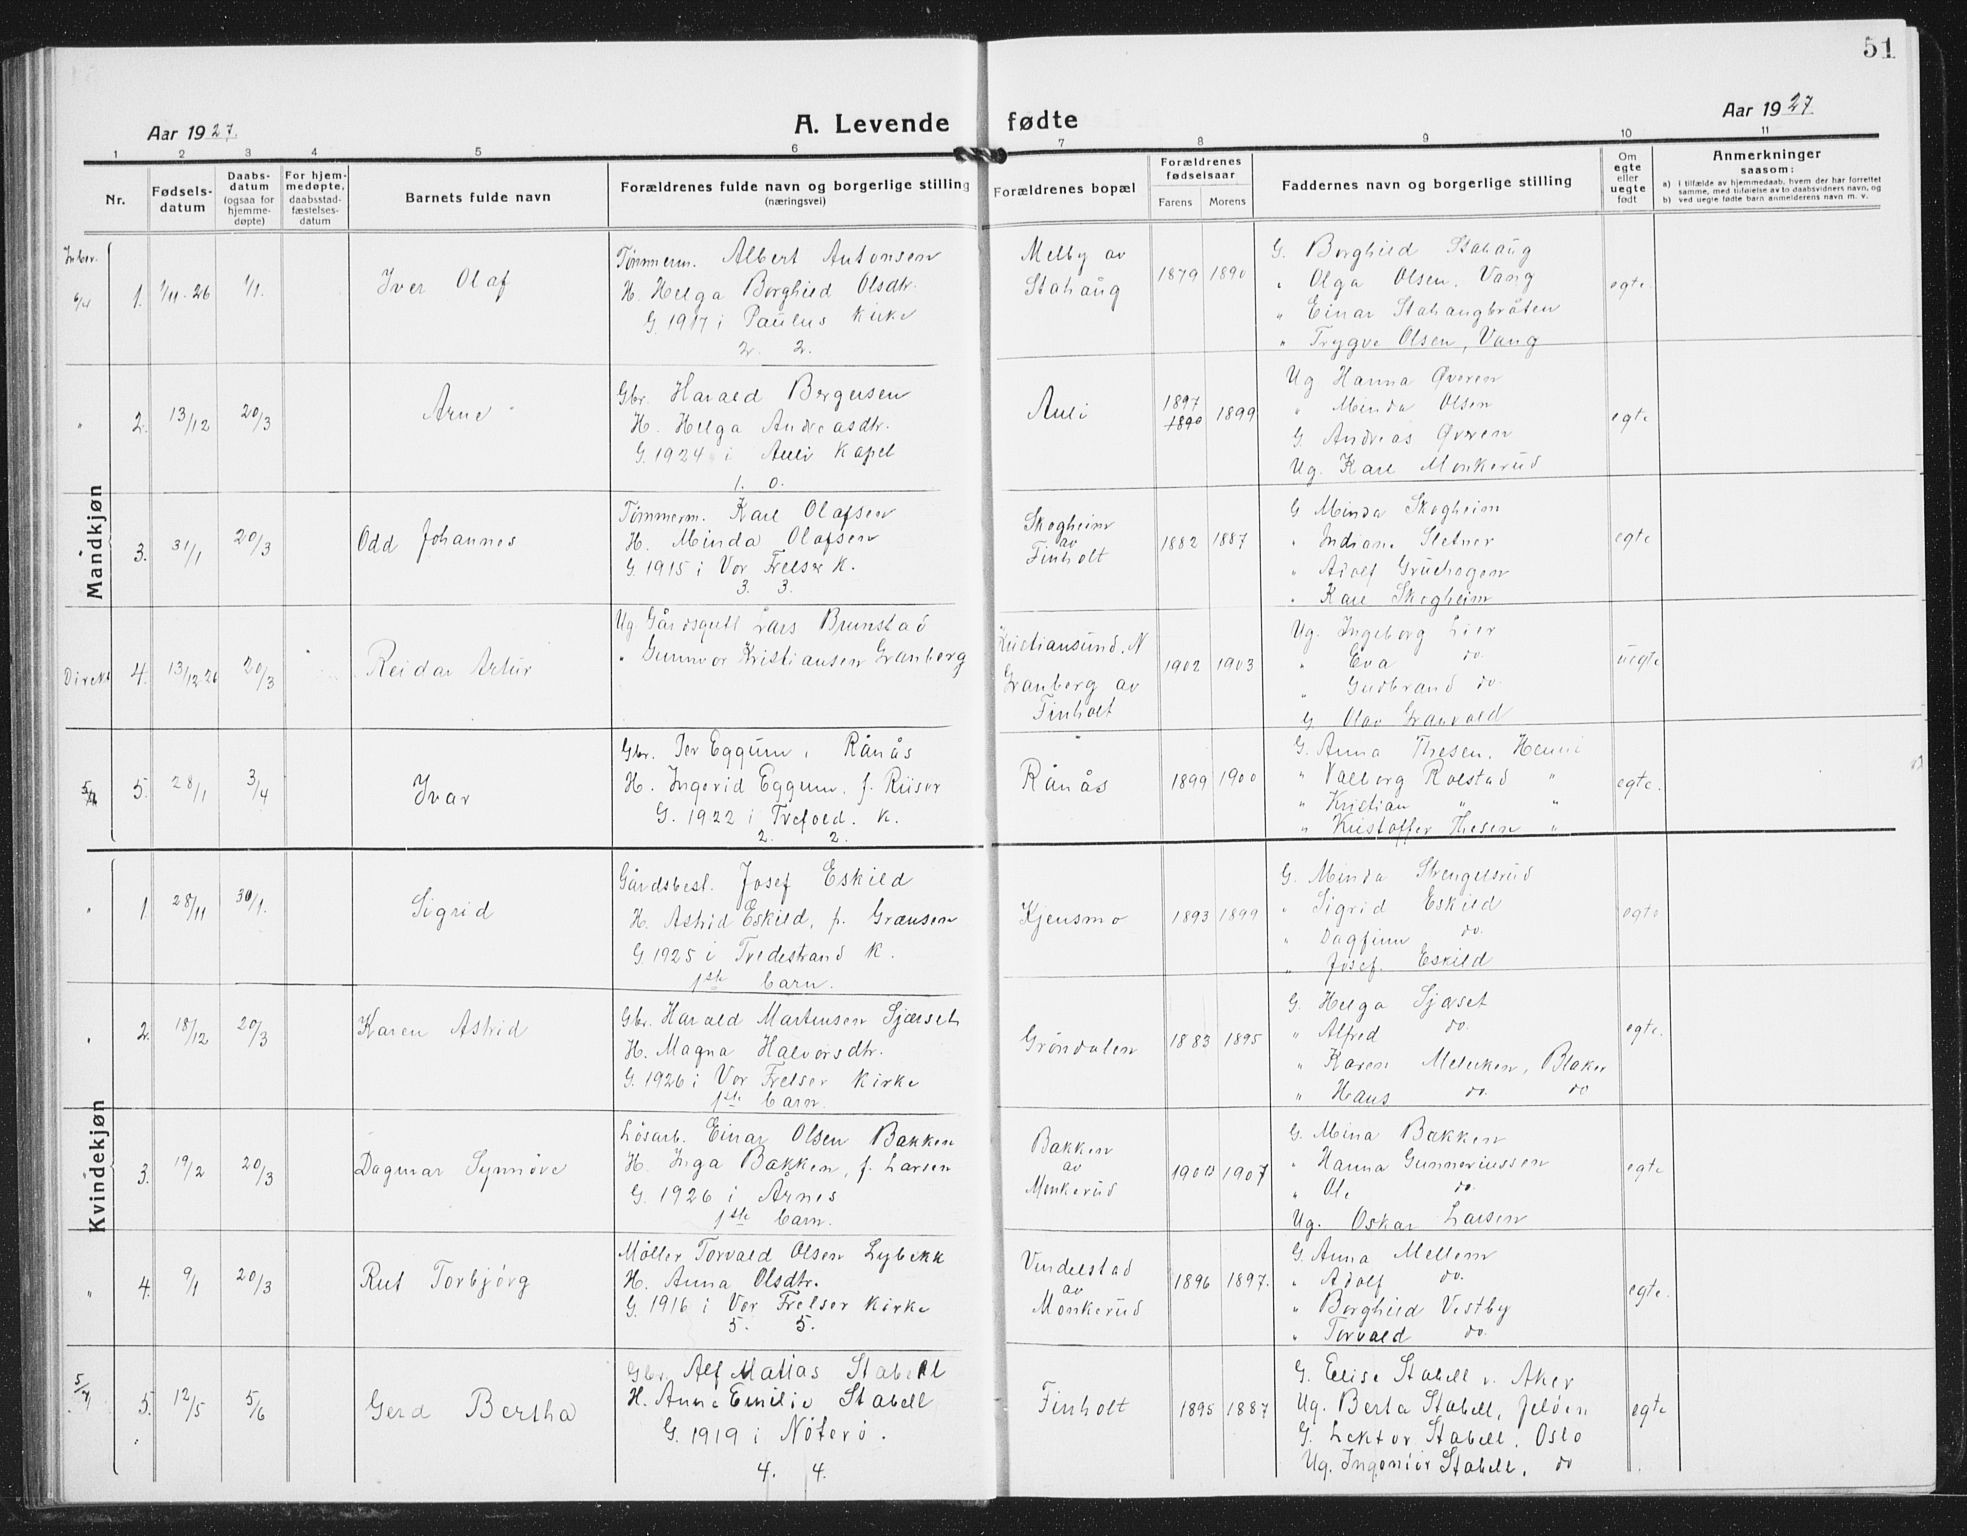 51
Aar 1927.
A. Levende fødte
Aar 1927
1 2 3 4 5 6 7 8 9 10 11
Nr.
Fødsels-
datum
Daabs-
datum
(ogsaa for
hjemme-
døpte)
For hjem-
medøpte,
daabsstad-
fæstelses-
datum
Barnets fulde navn
Forældrenes fulde navn og borgerlige stilling
(næringsvei)
Forældrenes bopæl
Forældrenes
fødselsaar
Farens Morens
Faddernes navn og borgerlige stilling
Om
egte
eller
uegte
født
Anmerkninger
saasom:
a) i tilfælde av hjemmedaab, hvem der har forrettet
samme, med tilføielse av to daabsvidners navn, og
b) ved uegte fødte barn anmelderens navn m. v.
Mandkjøn
1. 1/11-26 1/1. Iver Olaf
Tømmerm. Albert Antonsen
H. Helga Borghild Olsdtr.
G. 1917 i Paulus Kirke
2. 2.
Melby av
Stahaug
1879 1890
G. Borghild Stahaug
" Olga Olsen, Vang
" Einar Stahaugbråten
" Trygve Olsen, Vang
egte.
" 2. 13/12 20/3 Arne
Gbr. Harald Bergersen
H. Helga Andreasdtr.
G. 1924 i Auli Kapel
1. 0.
Auli
1897
1890 1899
Ug Hanna Øveren
" Minda Olsen
G. Andreas Øveren
Ug. Karl Monkerud
egte
3. 31/1 20/3 Odd Johannes
Tømmerm. Karl Olafsen
H. Minda Olafsen
G. 1915 i Vor Frelser K.
3. 3.
Skogheim
av
Finholt
1882 1887
G Minda Skogheim
" Indiane Sletner
" Adolf Gruehagen
" Karl Skogheim
egte
Direkt 4. 13/12 26 20/3 Reidar Artur
Ug Gårdsgutt Lars Brunstad
" Gunnvor Kristiansen Granberg
Kristiansund. N
Granberg av
Finholt
1902 1903
Ug. Ingeborg Lier
" Eva do
" Gudbrand do.
G Olav Granvold
uegte
5. 28/1 3/4 Ivar
Gbr. Per Eggum, Rånås
H. Ingerid Eggum, f. Riiser
G. 1922 i Trefold. K.
2. 2.
Rånås
1899 1900
G. Anna Thesen, Henni
" Valborg Rolstad "
" Kristian " "
" Kristoffer Thesen "
egte.
Kvindekjøn
" 1. 28/11 30/1. Sigrid
Gårdsbest. Josef Eskild
H. Astrid Eskild, f. Grænsen
G. 1925 i Tvedestrand K.
1ste barn.
Kjensmo
1893 1899
G. Minda Strengelsrud
" Sigrid Eskild
" Dagfinn do.
" Josef Eskild
egte
" 2. 18/12 20/3 Karen Astrid
Gbr. Harald Martinsen Sjærset
H. Magna Halvorsdtr.
G. 1926 i Vor Frelser Kirke
1ste barn.
Grøndalen
1883 1895
G. Helga Sjærset
" Alfred do.
" Karen Melnken, Blaker
" Hans do. do
egte.
3. 19/2 20/3 Dagmar Synnøve
Løsarb. Einar Olsen Bakken
H. Inga Bakken, f. Larsen
G. 1926 i Årnes
1ste barn.
Bakken
av
Monkerud
1900 1907
G. Mina Bakken
" Hanna Gunneriussen
" Ole do.
Ug. Oskar Larsen
egte
" 4. 9/1 20/3 Rut Torbjørg
Møller Torvald Olsen Lybekk
H. Anna Olsdtr.
G. 1916 i Vor Frelser Kirke
5. 5.
Vindelstad
av
Monkerud
1896 1897.
G. Anna Mellem
" Adolf do.
" Borghild Vestby
" Torvald do.
egte.
5. 12/5 5/6 Gerd Bertha
Gbr. Alf Matias Stabell
H. Anna Emilie Stabell
G. 1919 i Nøterø.
4. 4.
Finholt
1895 1887
G. Elise Stabell v. Aker
Ug. Berta Stabell, Jeløen
G. Lektor Stabell, Oslo
Ug. Ingeniør Stabell, do
egte